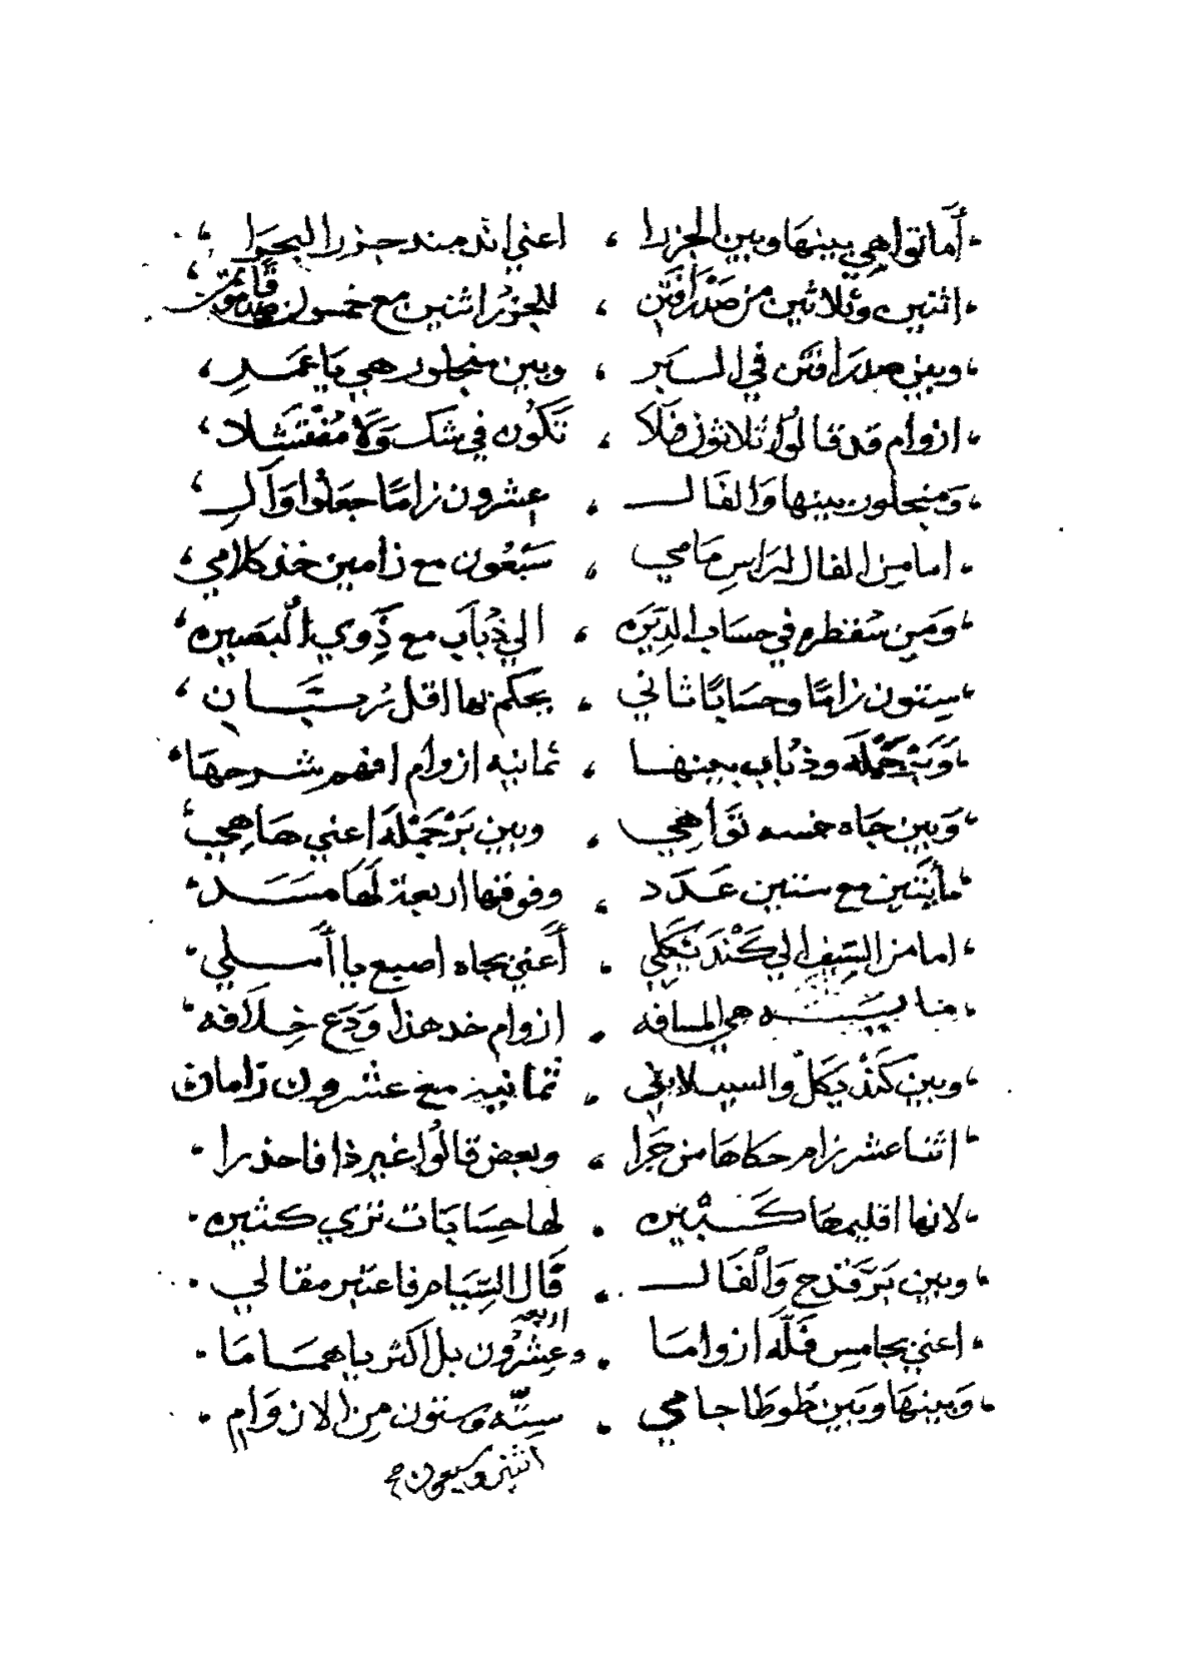 أما تواهي بينها وبين الجزرا ، اعني اندمند جزر البحرا
اثنين وثلاثين من صدرافتن ، للجزر اثنين مع خمسون
وبين صدرافتن في السبر ، وبين منجلور هي يا عمد
ازوام قد قالوا ثلاثون فلا ، تكون في شك ولا مفتشلا
ومنجلور بينها والفال ، عشرون زاما جعلوا وآل
اما من الفال لراس مامي ، سبعون مع زامين خذ كلامي
ومن سقطره في حساب الديره ، الي ذباب مع ذوي البصيره
ستون زاما وحسابا ثاني ، يحكم بها اقل ربان
وبر حمله وذباب بينها ، ثمانيه ازوام افهم شرحها
وبين جاه خمسه تواهي ، وبين بر حمله اعني هاهي
مأيتين مع ستين عدد ، وفوقها اربعة لها مسد
اما من السيف الي كندتكلي ، أعني بجاه اصبع يا أملي
مايتـه هي المسافه ، ازوام خد هذا ودع خلافه
وبين كندتكل والسيلاني ، ثمانيه مع عشرون زامان
اثنا عشر زام حكاها من جرا ، وبعض قالوا غير ذا فاحذرا
لانها اقليمها كبيره ، لها حسابات تري كثيره
وبين برقندح والفال ، قال السيام فاعتبر مقالي
اعني بجامس فله ازواما ، وعشرون بل اكثر يا هماما
اربعه
وبينها وبين طوطاجامي ، سته وستون من الازوام
اثنين وسبعون